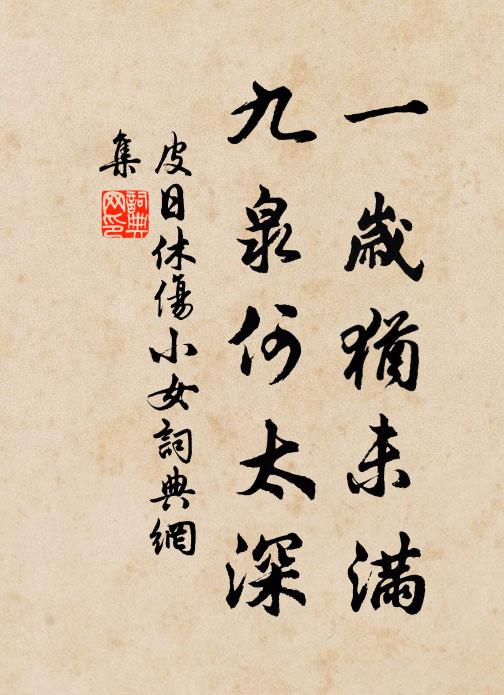 一歲猶未滿
九泉何太深
皮日休傷小女詞典網
集
詞典
网印